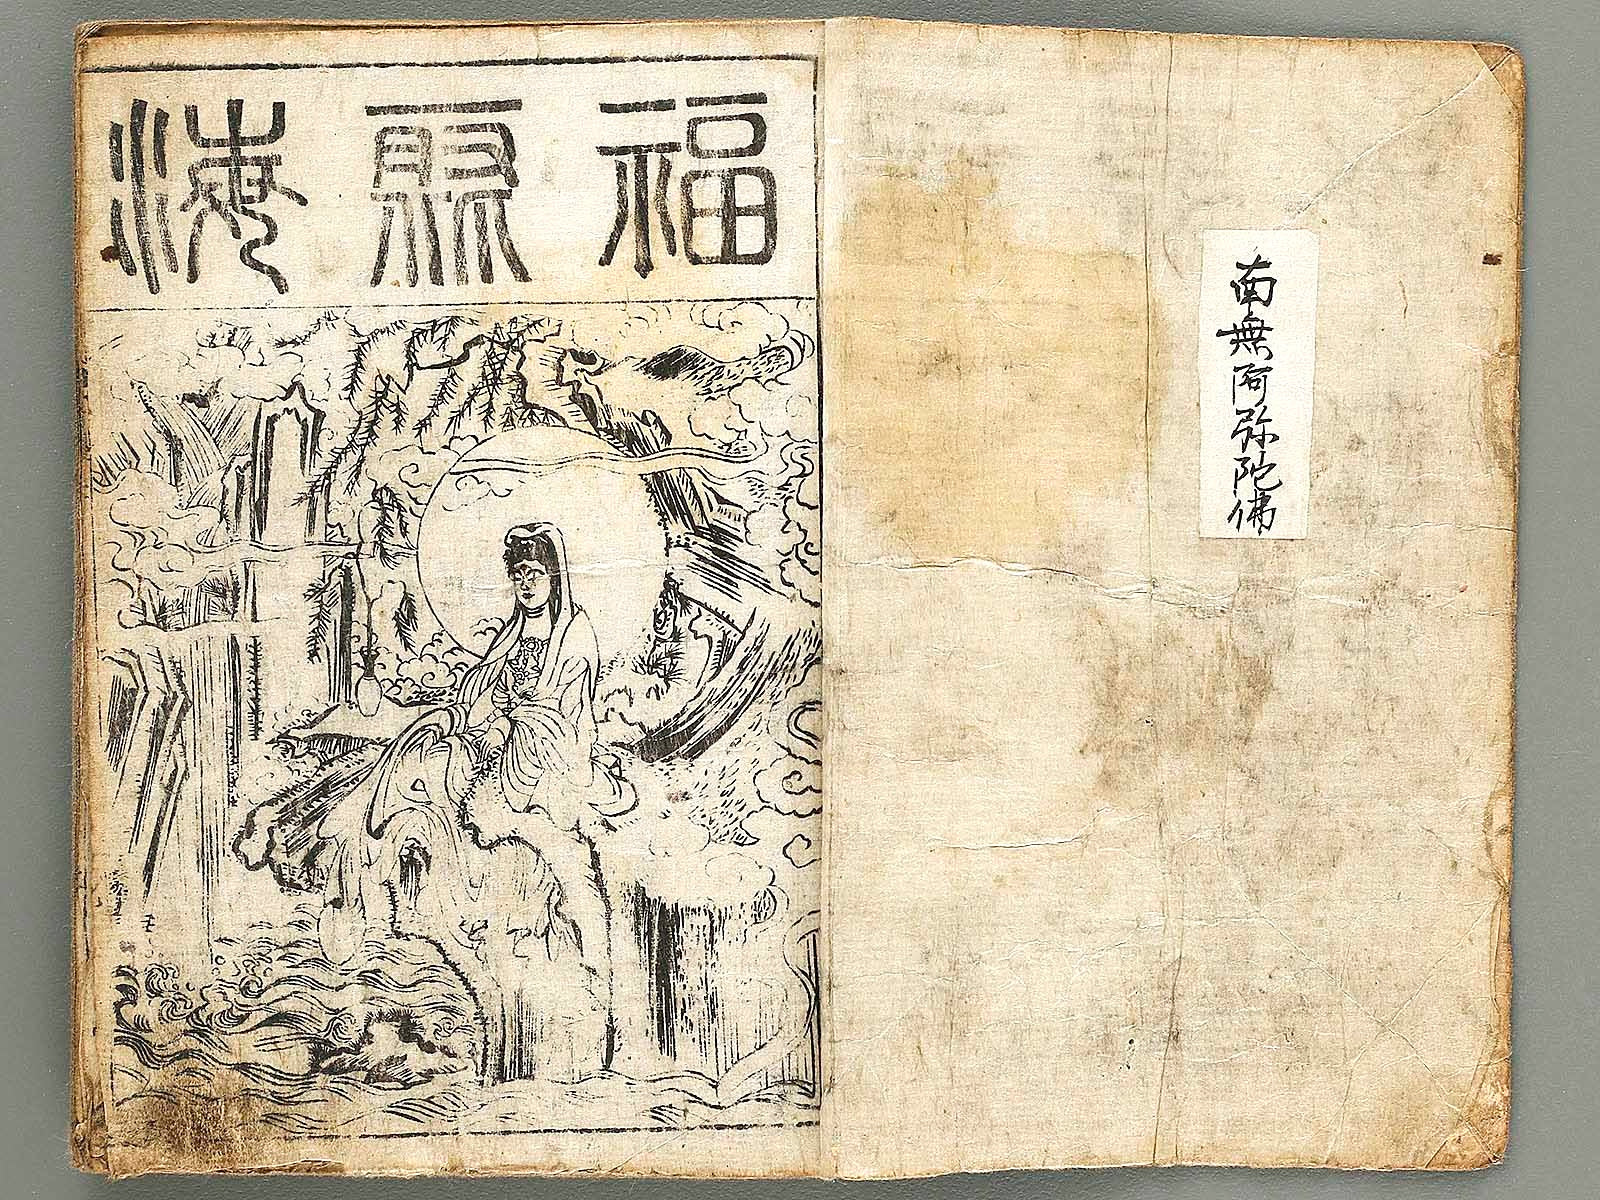 南無阿弥陀佛
福聚海